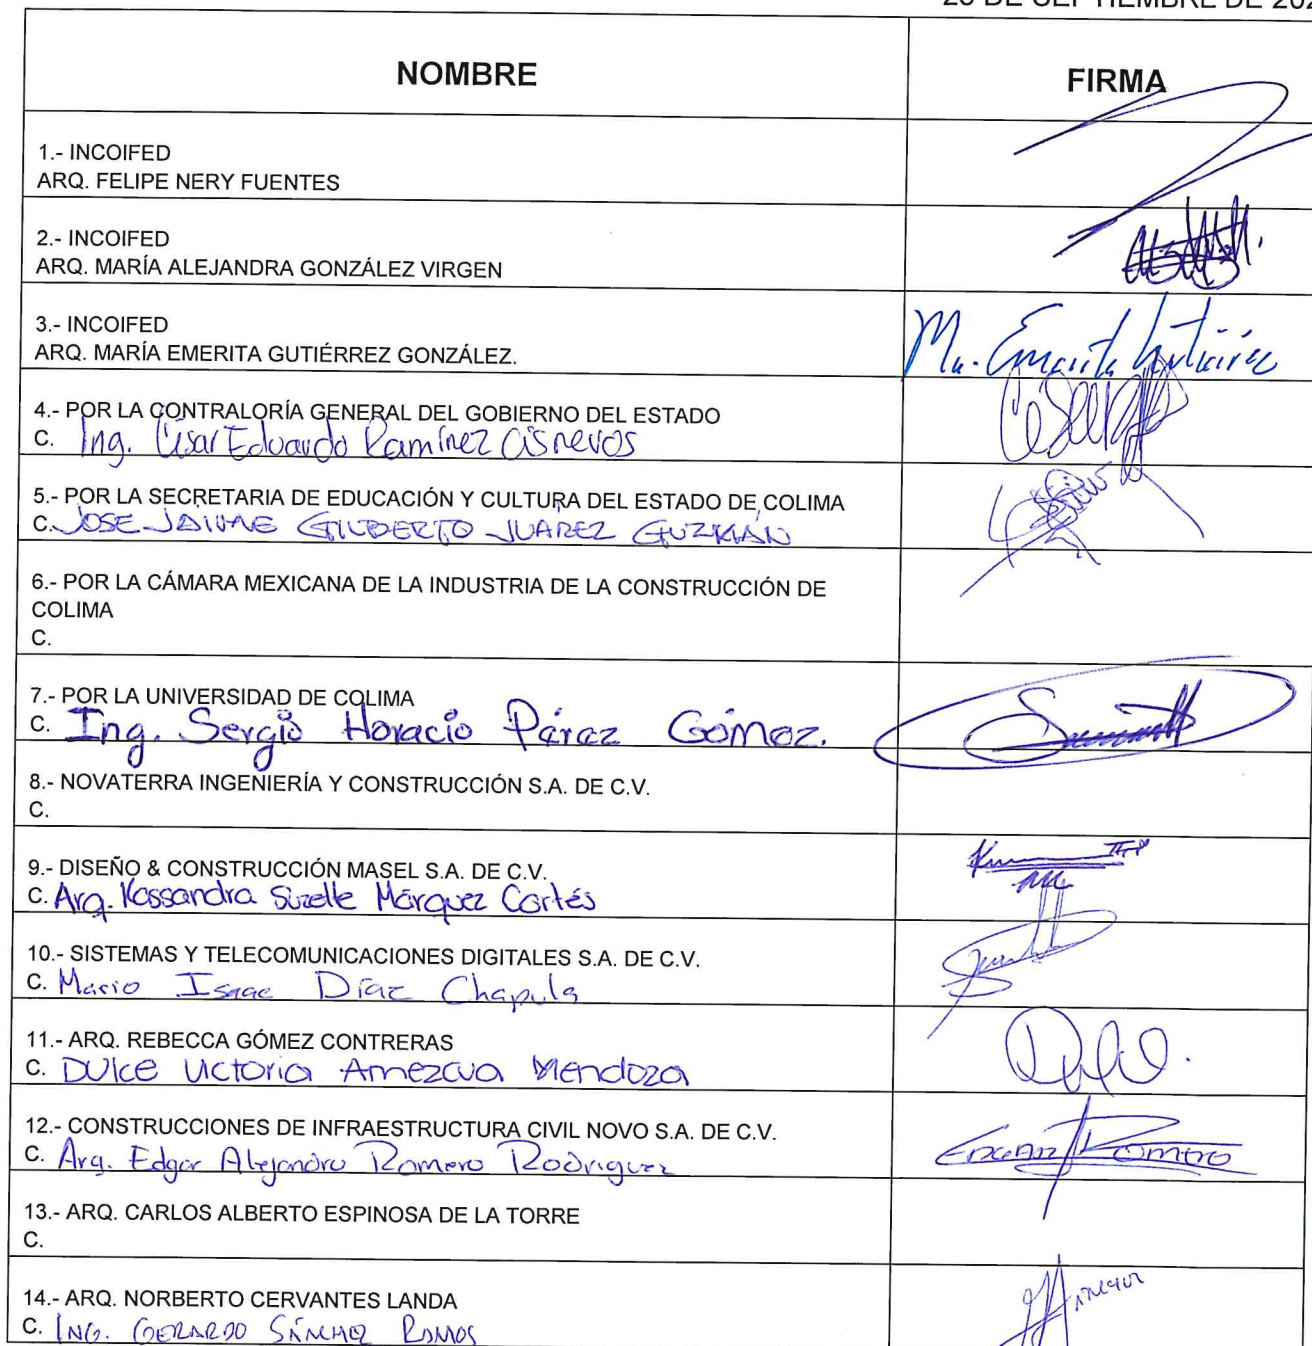 DE SEPTIEMBRE DE 202
NOMBRE
FIRMA
1.- INCOIFED
ARQ. FELIPE NERY FUENTES
2.- INCOIFED
ARQ. MARÍA ALEJANDRA GONZÁLEZ VIRGEN
3.- INCOIFED
ARQ. MARÍA EMERITA GUTIÉRREZ GONZÁLEZ.
Ma. Emerita Gutiérrez
4.- POR LA CONTRALORÍA GENERAL DEL GOBIERNO DEL ESTADO
C. Ing. César Eduardo Ramírez Cisneros
5.- POR LA SECRETARIA DE EDUCACIÓN Y CULTURA DEL ESTADO DE COLIMA
C. JOSE JAIME GILBERTO JUAREZ GUZMAN
6.- POR LA CÁMARA MEXICANA DE LA INDUSTRIA DE LA CONSTRUCCIÓN DE
COLIMA
C.
7.- POR LA UNIVERSIDAD DE COLIMA
C. Ing. Sergio Horacio Pérez Gómez.
8.- NOVATERRA INGENIERÍA Y CONSTRUCCIÓN S.A. DE C.V.
C.
9.- DISEÑO & CONSTRUCCIÓN MASEL S.A. DE C.V.
C. Arq. Kassandra Suzelle Márquez Cortés
10.- SISTEMAS Y TELECOMUNICACIONES DIGITALES S.A. DE C.V.
C. Mario Isaac Díaz Chapula
11.- ARQ. REBECCA GÓMEZ CONTRERAS
C. Dulce Victoria Amezcua Mendoza
12.- CONSTRUCCIONES DE INFRAESTRUCTURA CIVIL NOVO S.A. DE C.V.
C. Arq. Edgar Alejandro Romero Rodriguez
EDGAR ROMERO
13.- ARQ. CARLOS ALBERTO ESPINOSA DE LA TORRE
C.
14.- ARQ. NORBERTO CERVANTES LANDA
C. ING. GERARDO SÁNCHEZ RAMOS